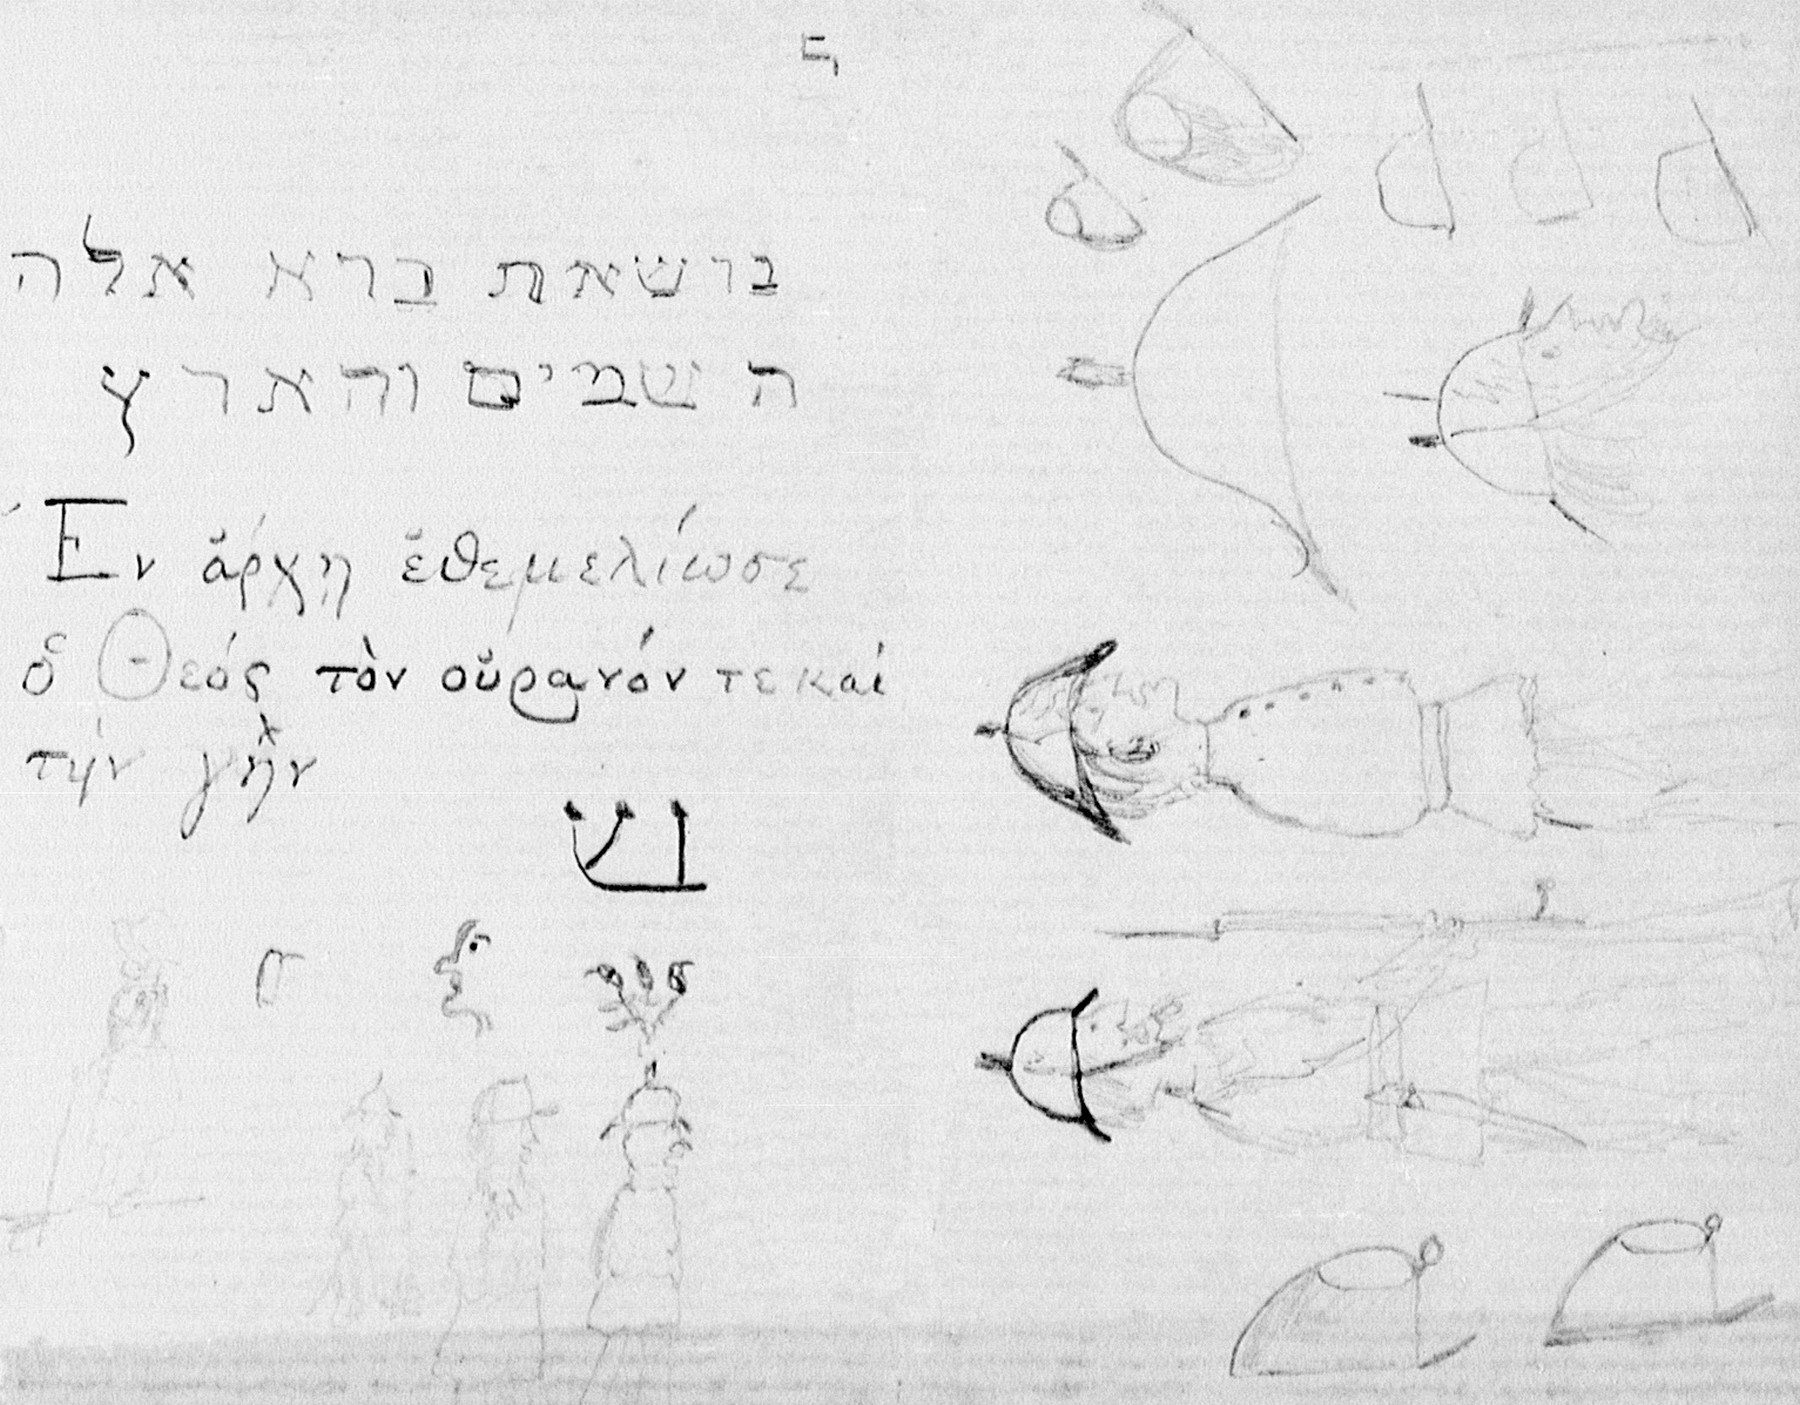 ברשאת ברא אלה
ה שמים והארץ
Ἐν ἄρχη ἐθεμελίωσε
ὁ Θεός τὸν οὐρανόν τε καί
τήν γῆν
ש